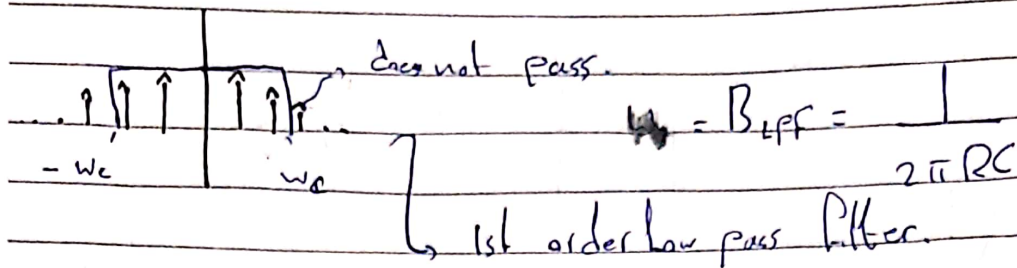 does not pass.
= B_LPF = 1 / 2πRC
- wc wc
1st order Low pass filter.